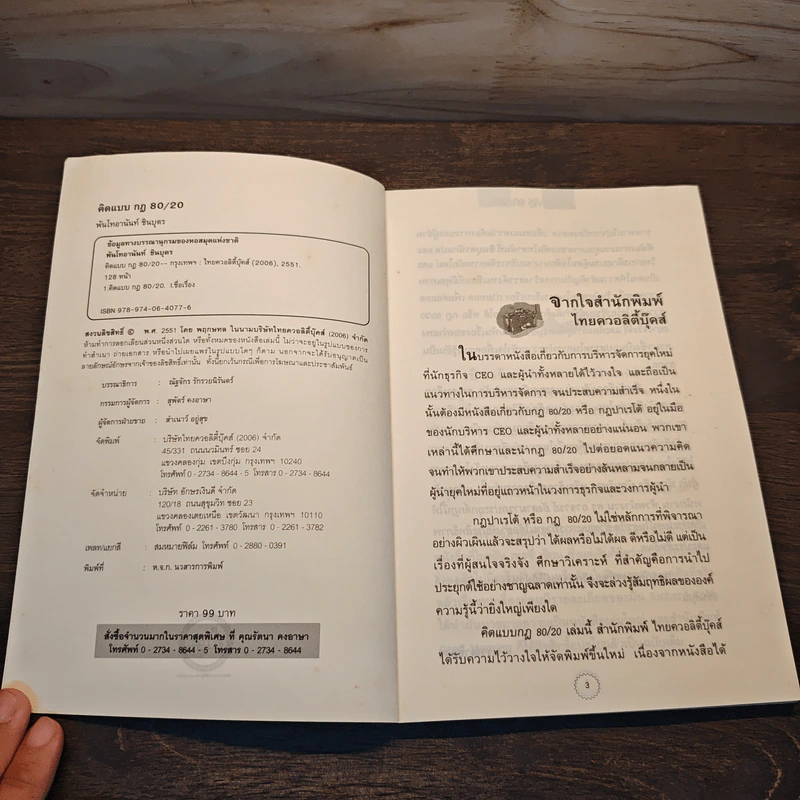 คิดแบบ กฎ 80/20
พันโทอานันท์ ชินบุตร
ข้อมูลทางบรรณานุกรมของหอสมุดแห่งชาติ
พันโทอานันท์ ชินบุตร
คิดแบบ กฎ 80/20-- กรุงเทพฯ : ไทยควอลิตี้บุ๊คส์ (2006), 2551.
128 หน้า
1.คิดแบบ กฎ 80/20. I.ชื่อเรื่อง
ISBN 978-974-06-4077-6
สงวนลิขสิทธิ์ © พ.ศ. 2551 โดย พฤกษทล ในนามบริษัทไทยควอลิตี้บุ๊คส์ (2006) จำกัด
ห้ามทำการลอกเลียนส่วนหนึ่งส่วนใด หรือทั้งหมดของหนังสือเล่มนี้ ไม่ว่าจะอยู่ในรูปแบบของการ
ทำสำเนา ถ่ายเอกสาร หรือนำไปเผยแพร่ในรูปแบบใดๆ ก็ตาม นอกจากจะได้รับอนุญาตเป็น
ลายลักษณ์อักษรจากเจ้าของลิขสิทธิ์เท่านั้น ทั้งนี้ยกเว้นกรณีเพื่อการโฆษณาและประชาสัมพันธ์
บรรณาธิการ : ณัฐจักร รักรวยนิรันดร์
กรรมการผู้จัดการ : สุพัตร์ คงอาษา
ผู้จัดการฝ่ายขาย : สำเนาว์ อยู่สุข
จัดพิมพ์ : บริษัทไทยควอลิตี้บุ๊คส์ (2006) จำกัด
45/331 ถนนนวมินทร์ ซอย 24
แขวงคลองกุ่ม เขตบึงกุ่ม กรุงเทพฯ 10240
โทรศัพท์ 0 - 2734 - 8644 - 5 โทรสาร 0 - 2734 - 8644
จัดจำหน่าย : บริษัท อักษรเงินดี จำกัด
120/18 ถนนสุขุมวิท ซอย 23
แขวงคลองเตยเหนือ เขตวัฒนา กรุงเทพฯ 10110
โทรศัพท์ 0 - 2261 - 3780 โทรสาร 0 - 2261 - 3782
เพลท/แยกสี : สมหมายฟิล์ม โทรศัพท์ 0 - 2880 - 0391
พิมพ์ที่ : ห.จ.ก. นวสารการพิมพ์
ราคา 99 บาท
สั่งซื้อจำนวนมากในราคาสุดพิเศษ ที่ คุณรัตนา คงอาษา
โทรศัพท์ 0 - 2734 - 8644 - 5 โทรสาร 0 - 2734 - 8644
จากใจสำนักพิมพ์
ไทยควอลิตี้บุ๊คส์
ในบรรดาหนังสือเกี่ยวกับการบริหารจัดการยุคใหม่
ที่นักธุรกิจ CEO และผู้นำทั้งหลายได้ไว้วางใจ และถือเป็น
แนวทางในการบริหารจัดการ จนประสบความสำเร็จ หนึ่งใน
นั้นต้องมีหนังสือเกี่ยวกับกฎ 80/20 หรือ กฎปาเรโต้ อยู่ในมือ
ของนักบริหาร CEO และผู้นำทั้งหลายอย่างแน่นอน พวกเขา
เหล่านี้ได้ศึกษาและนำกฎ 80/20 ไปต่อยอดแนวความคิด
จนทำให้พวกเขาประสบความสำเร็จอย่างล้นหลามจนกลายเป็น
ผู้นำยุคใหม่ที่อยู่แถวหน้าในวงการธุรกิจและวงการผู้นำ
กฎปาเรโต้ หรือ กฎ 80/20 ไม่ใช่หลักการที่พิจารณา
อย่างผิวเผินแล้วจะสรุปว่า ได้ผลหรือไม่ได้ผล ดีหรือไม่ดี แต่เป็น
เรื่องที่ผู้สนใจจริงจัง ศึกษาวิเคราะห์ ที่สำคัญคือการนำไป
ประยุกต์ใช้อย่างชาญฉลาดเท่านั้น จึงจะล่วงรู้สัมฤทธิผลขององค์
ความรู้นี้ว่ายิ่งใหญ่เพียงใด
คิดแบบกฎ 80/20 เล่มนี้ สำนักพิมพ์ ไทยควอลิตี้บุ๊คส์
ได้รับความไว้วางใจให้จัดพิมพ์ขึ้นใหม่ เนื่องจากหนังสือได้
3